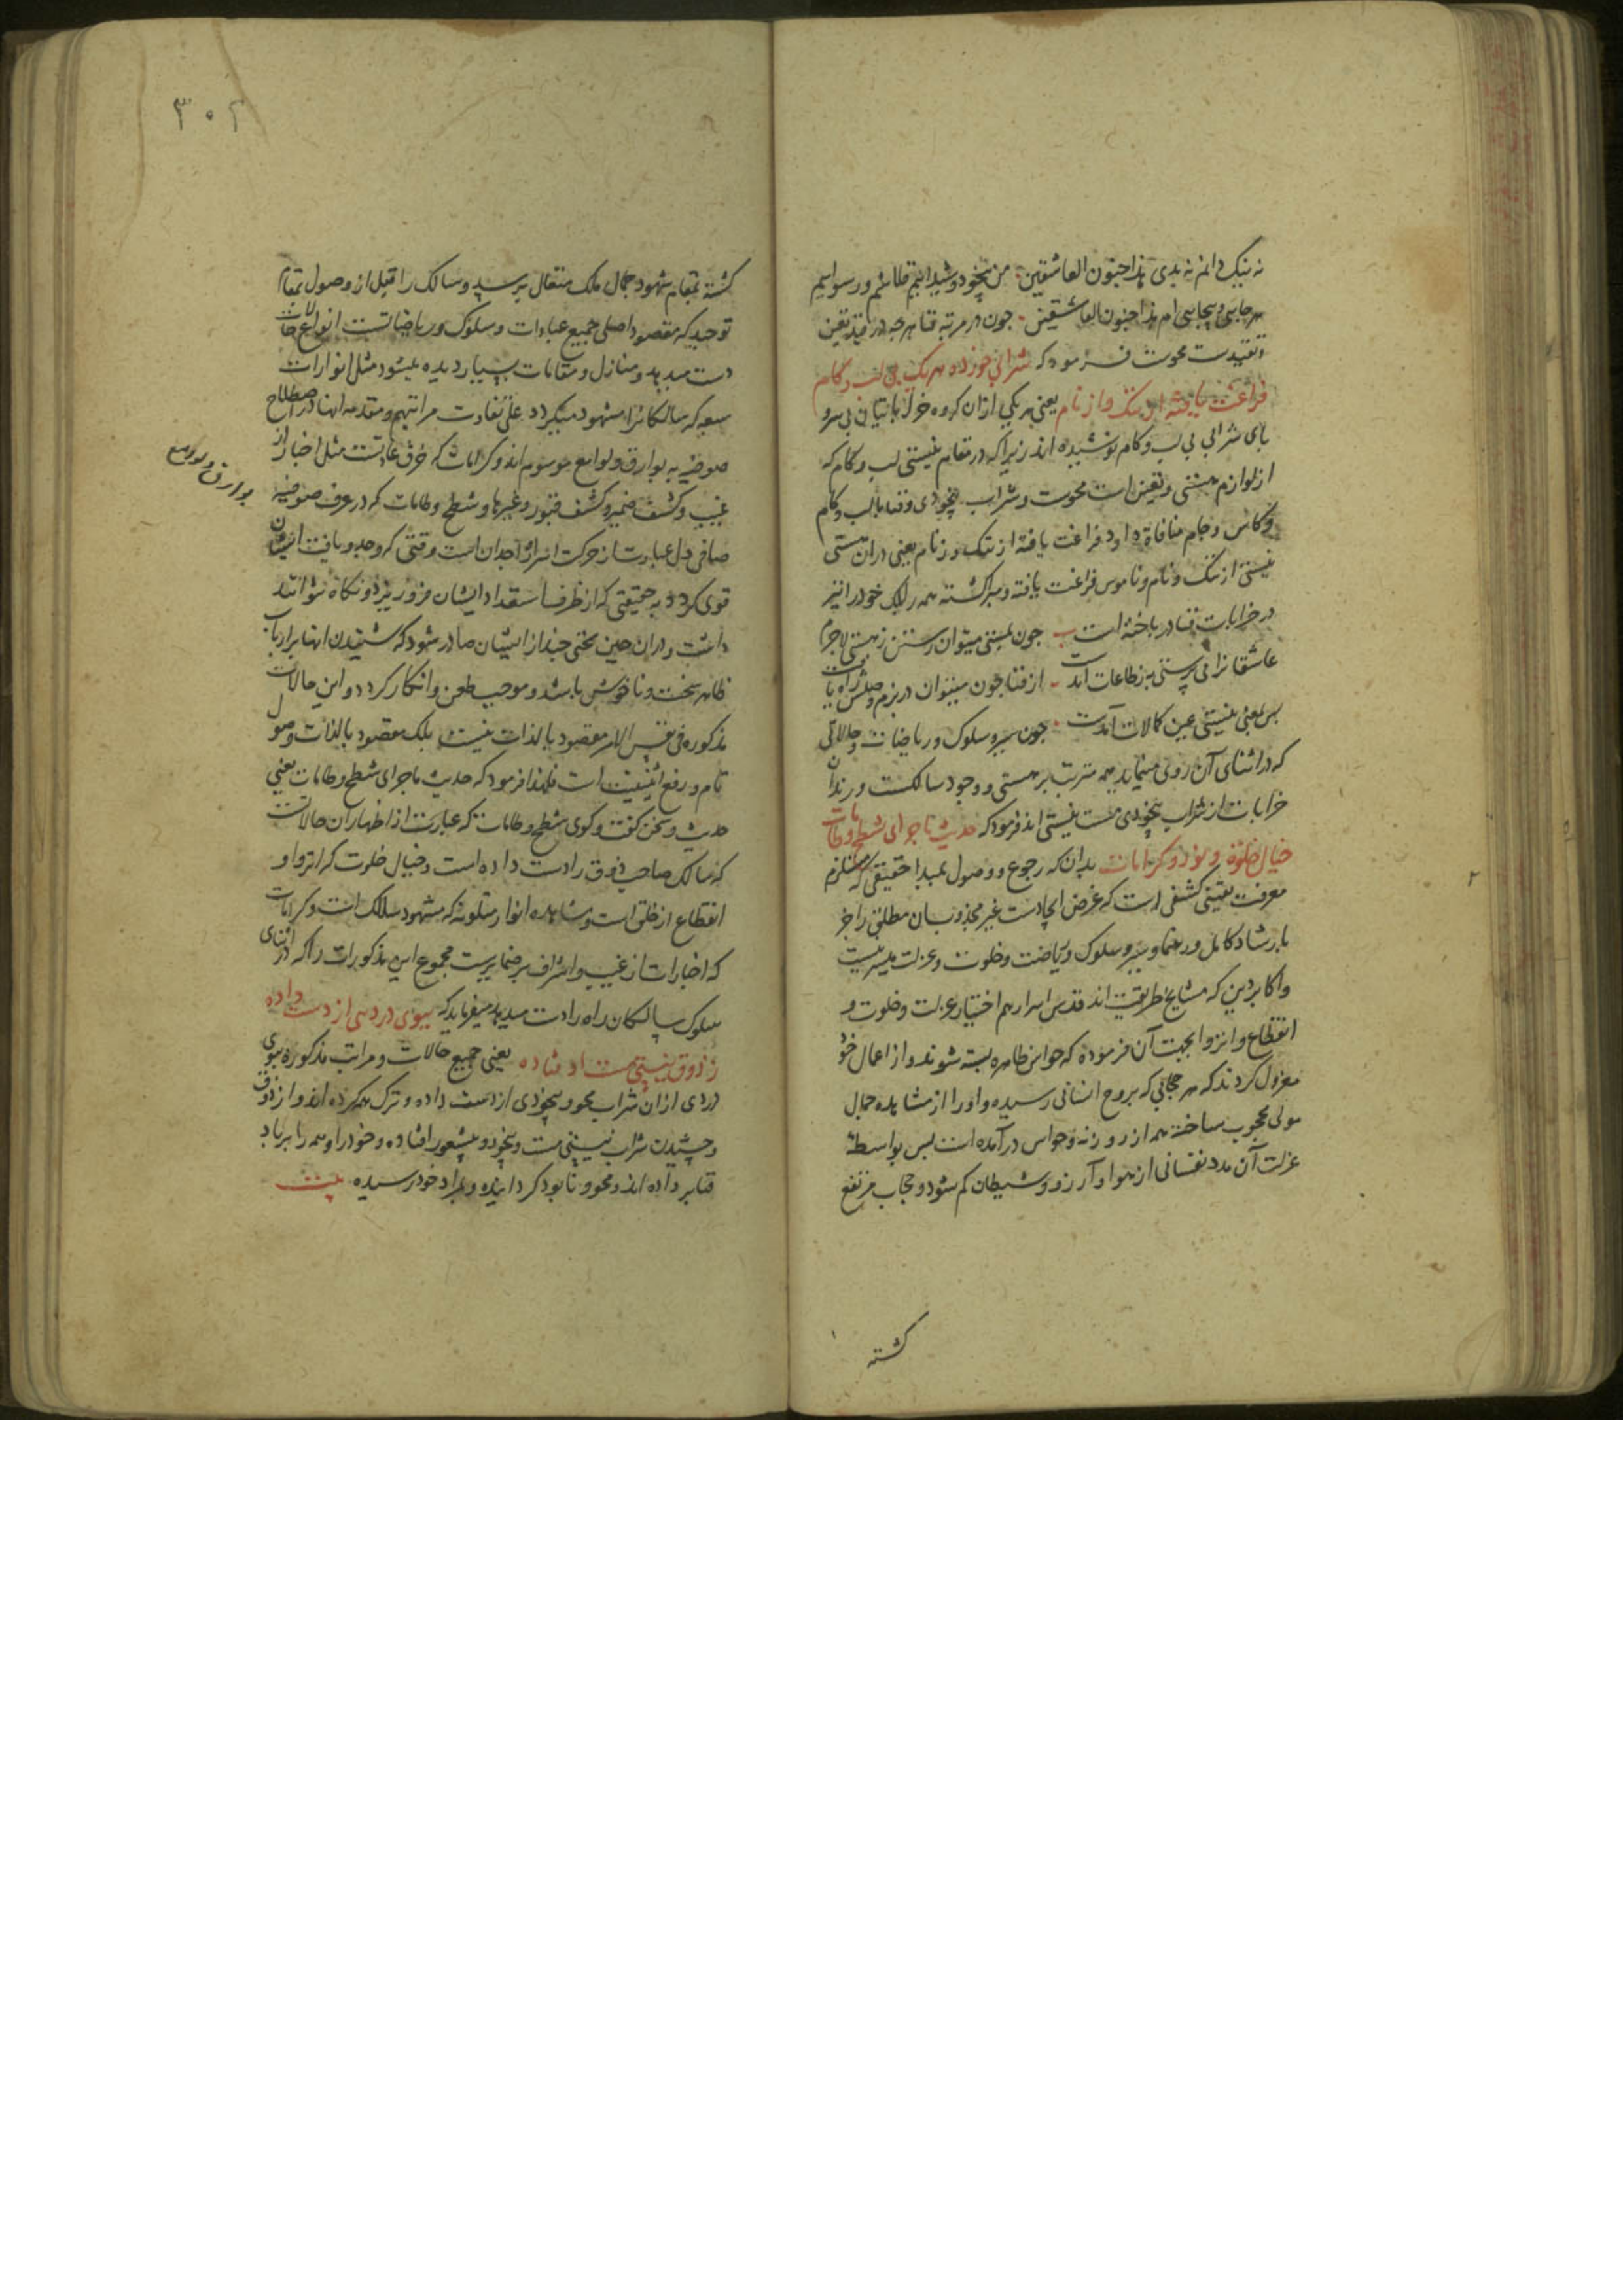 نه نیک دانم نه بدی هذا جنون العاشقین من بیخود و شیداییم قلاشم و رسواییم
هرجایی و بیجایی ام هذا جنون العاشقین چون در مرتبه فنا هرچه در قید تعین
و تقیدست محوست فرمود که شرابی خورده هر یک بی لب و کام
فراغت یافته از ننگ و از نام یعنی هر یکی ازان کروه خراباتیان بی سرو
بای شرابی بی لب و کام نوشیده اند زیرا که در مقام نیستی لب و کام که
از لوازم هستی و تعین است محوست و شراب بیخودی و فنا با لب و کام
و کاس و جام منافاة دارد فراغت یافته از ننک و ز نام یعنی دران مستی
نیستی از ننک و نام و ناموس فراغت یافته و مبرا کشته همه را بلک خود را نیز
در خرابات فنا درباخته است ب چون بمستی میتوان رستن ز هستی لاجرم
عاشقانرا می پرستی به ز طاعات آمدست از فنا چون میتوان در بزم وصلش راه یافت
بس یعنی نیستی عین کمالات آمدست چون سیر و سلوک و ریاضات و حالاتی
که در اثنای آن روی مینماید همه مترتب بر هستی و وجود سالکست و رندان
خرابات از شراب بیخودی مست نیستی اند فرمود که حدیث ماجرای شطح و طامات
خیال خلوة و نور و کرامات بدان که رجوع و وصول بمبدا حقیقی که مستلزم
معرفت یقینی کشفی است که غرض ایجادست غیر مجذوبان مطلق را جز
بارشاد کامل و رهنما و سیر و سلوک و ریاضت و خلوت و عزلت میسر نیست
و اکابر دین که مشایخ طریقت اند قدس اسرارهم اختیار عزلت و خلوت و
انقطاع و انزوا بجهت آن فرموده که حواس ظاهره بسته شوند و از اعمال خود
معزول کردند که هر حجابی که بروح انسانی رسیده و او را از مشاهده جمال
مولی محجوب ساخته همه از روزنه حواس درآمده است بس بواسطه
عزلت آن مدد نفسانی از هوا و آرزو و شیطان کم شود و حجاب مرتفع
کشته
۳۰۲
کشته بمقام شهود جمال ملک متعال برسد و سالک را قبل از وصول بمقام
توحید که مقصود اصلی جمیع عبادات و سلوک و ریاضاتست انواع حالات
دست میدهد و منازل و مقامات بسیار دیده میشود مثل انوارات
سبعه که سالکانرا مشهود میکردد علی تفاوت مراتبهم و مقدمه آنها در اصطلاح
صوفیه به بوارق و لوامع موسوم اند و کرامات که خرق عادتست مثل اخبار از
غیب و کشف ضمیر و کشف قبور و غیرها و شطح و طامات که در عرف صوفیه
صافی دل عبارت از حرکت اسرار واجدان است وقتی که وجد و یافت ایشان
قوی کردد به حیثیتی که از ظرف استعداد ایشان فرو ریزد و نکاه نتوانند
داشت و دران حین سخنی چند از ایشان صادر شود که شنیدن آنها بر ارباب
ظاهر سخت و ناخوش باشد و موجب طعن و انکار کردد و این حالات
مذکوره فی نفس الامر مقصود بالذات نیست بلک مقصود بالذات وصول
تام و رفع اثنینیت است فلهذا فرمود که حدیث ماجرای شطح و طامات یعنی
حدیث و سخن کفت و کوی شطح و طامات که عبارت از اظهار آن حالاتست
که سالک صاحب ذوق را دست داده است و خیال خلوت که انزوا و
انقطاع از خلق است و مشاهده انوار متلونه که مشهود سالک است و کرامات
که اخبارات از غیب و اشراف بر ضمایرست مجموع این مذکورات را که در اثنای
سلوک سالکان راه را دست میدهد میفرماید که ببوی دردی از دست داده
ز ذوق نیستی مست اوفتاده یعنی جمیع حالات و مراتب مذکوره ببوی
دردی ازان شراب محو و بیخودی از دست داده و ترک همه کرده اند و از ذوق
و چشیدن شراب نیستی مست و بیخود و بیشعور افتاده و خود را و همه را برباد
فنا بر داده اند و محو و نابود کردانیده و بمراد خود رسیده بیت
بوارق و لوامع